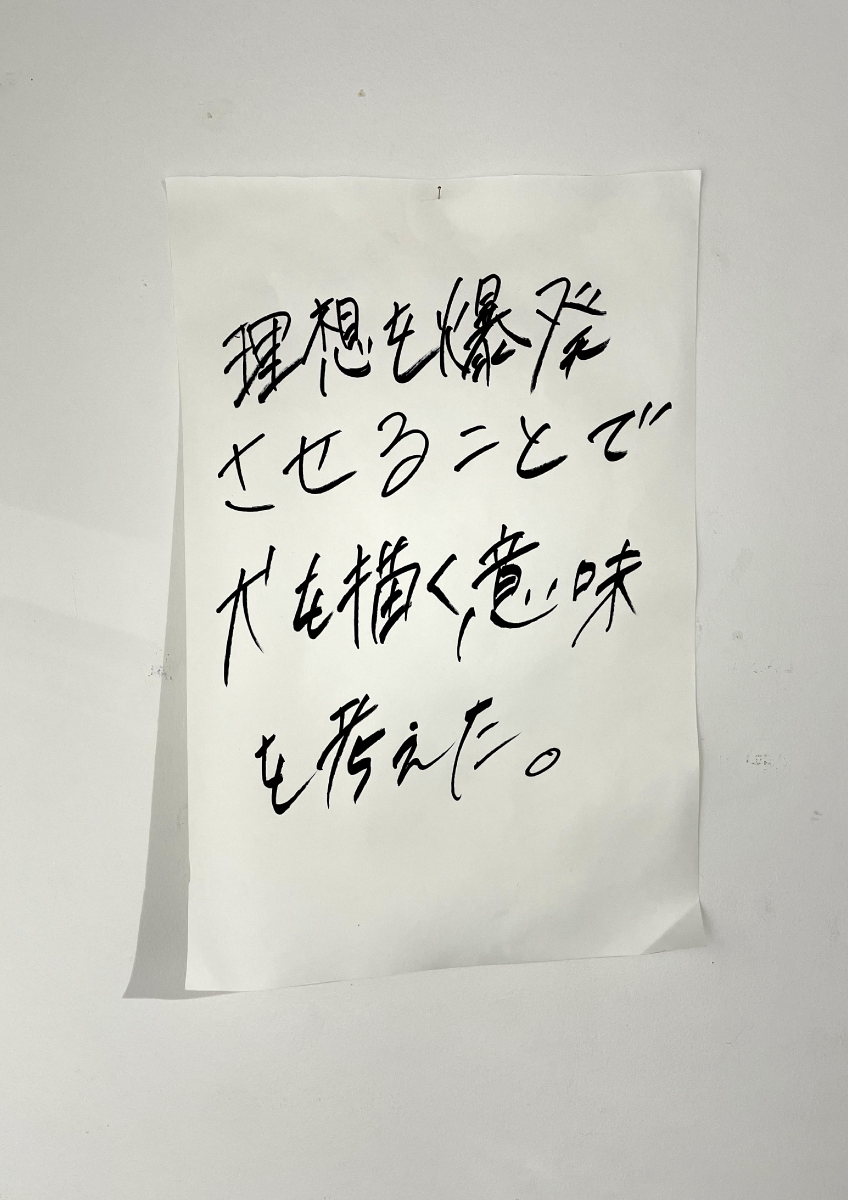 理想を爆発
させることで
犬を描く意味
を考えた。